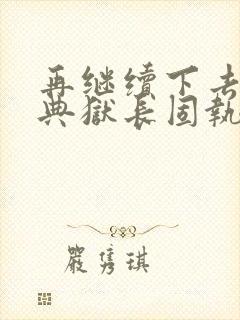 再继续下去
典獄长固執
嚴隽琪